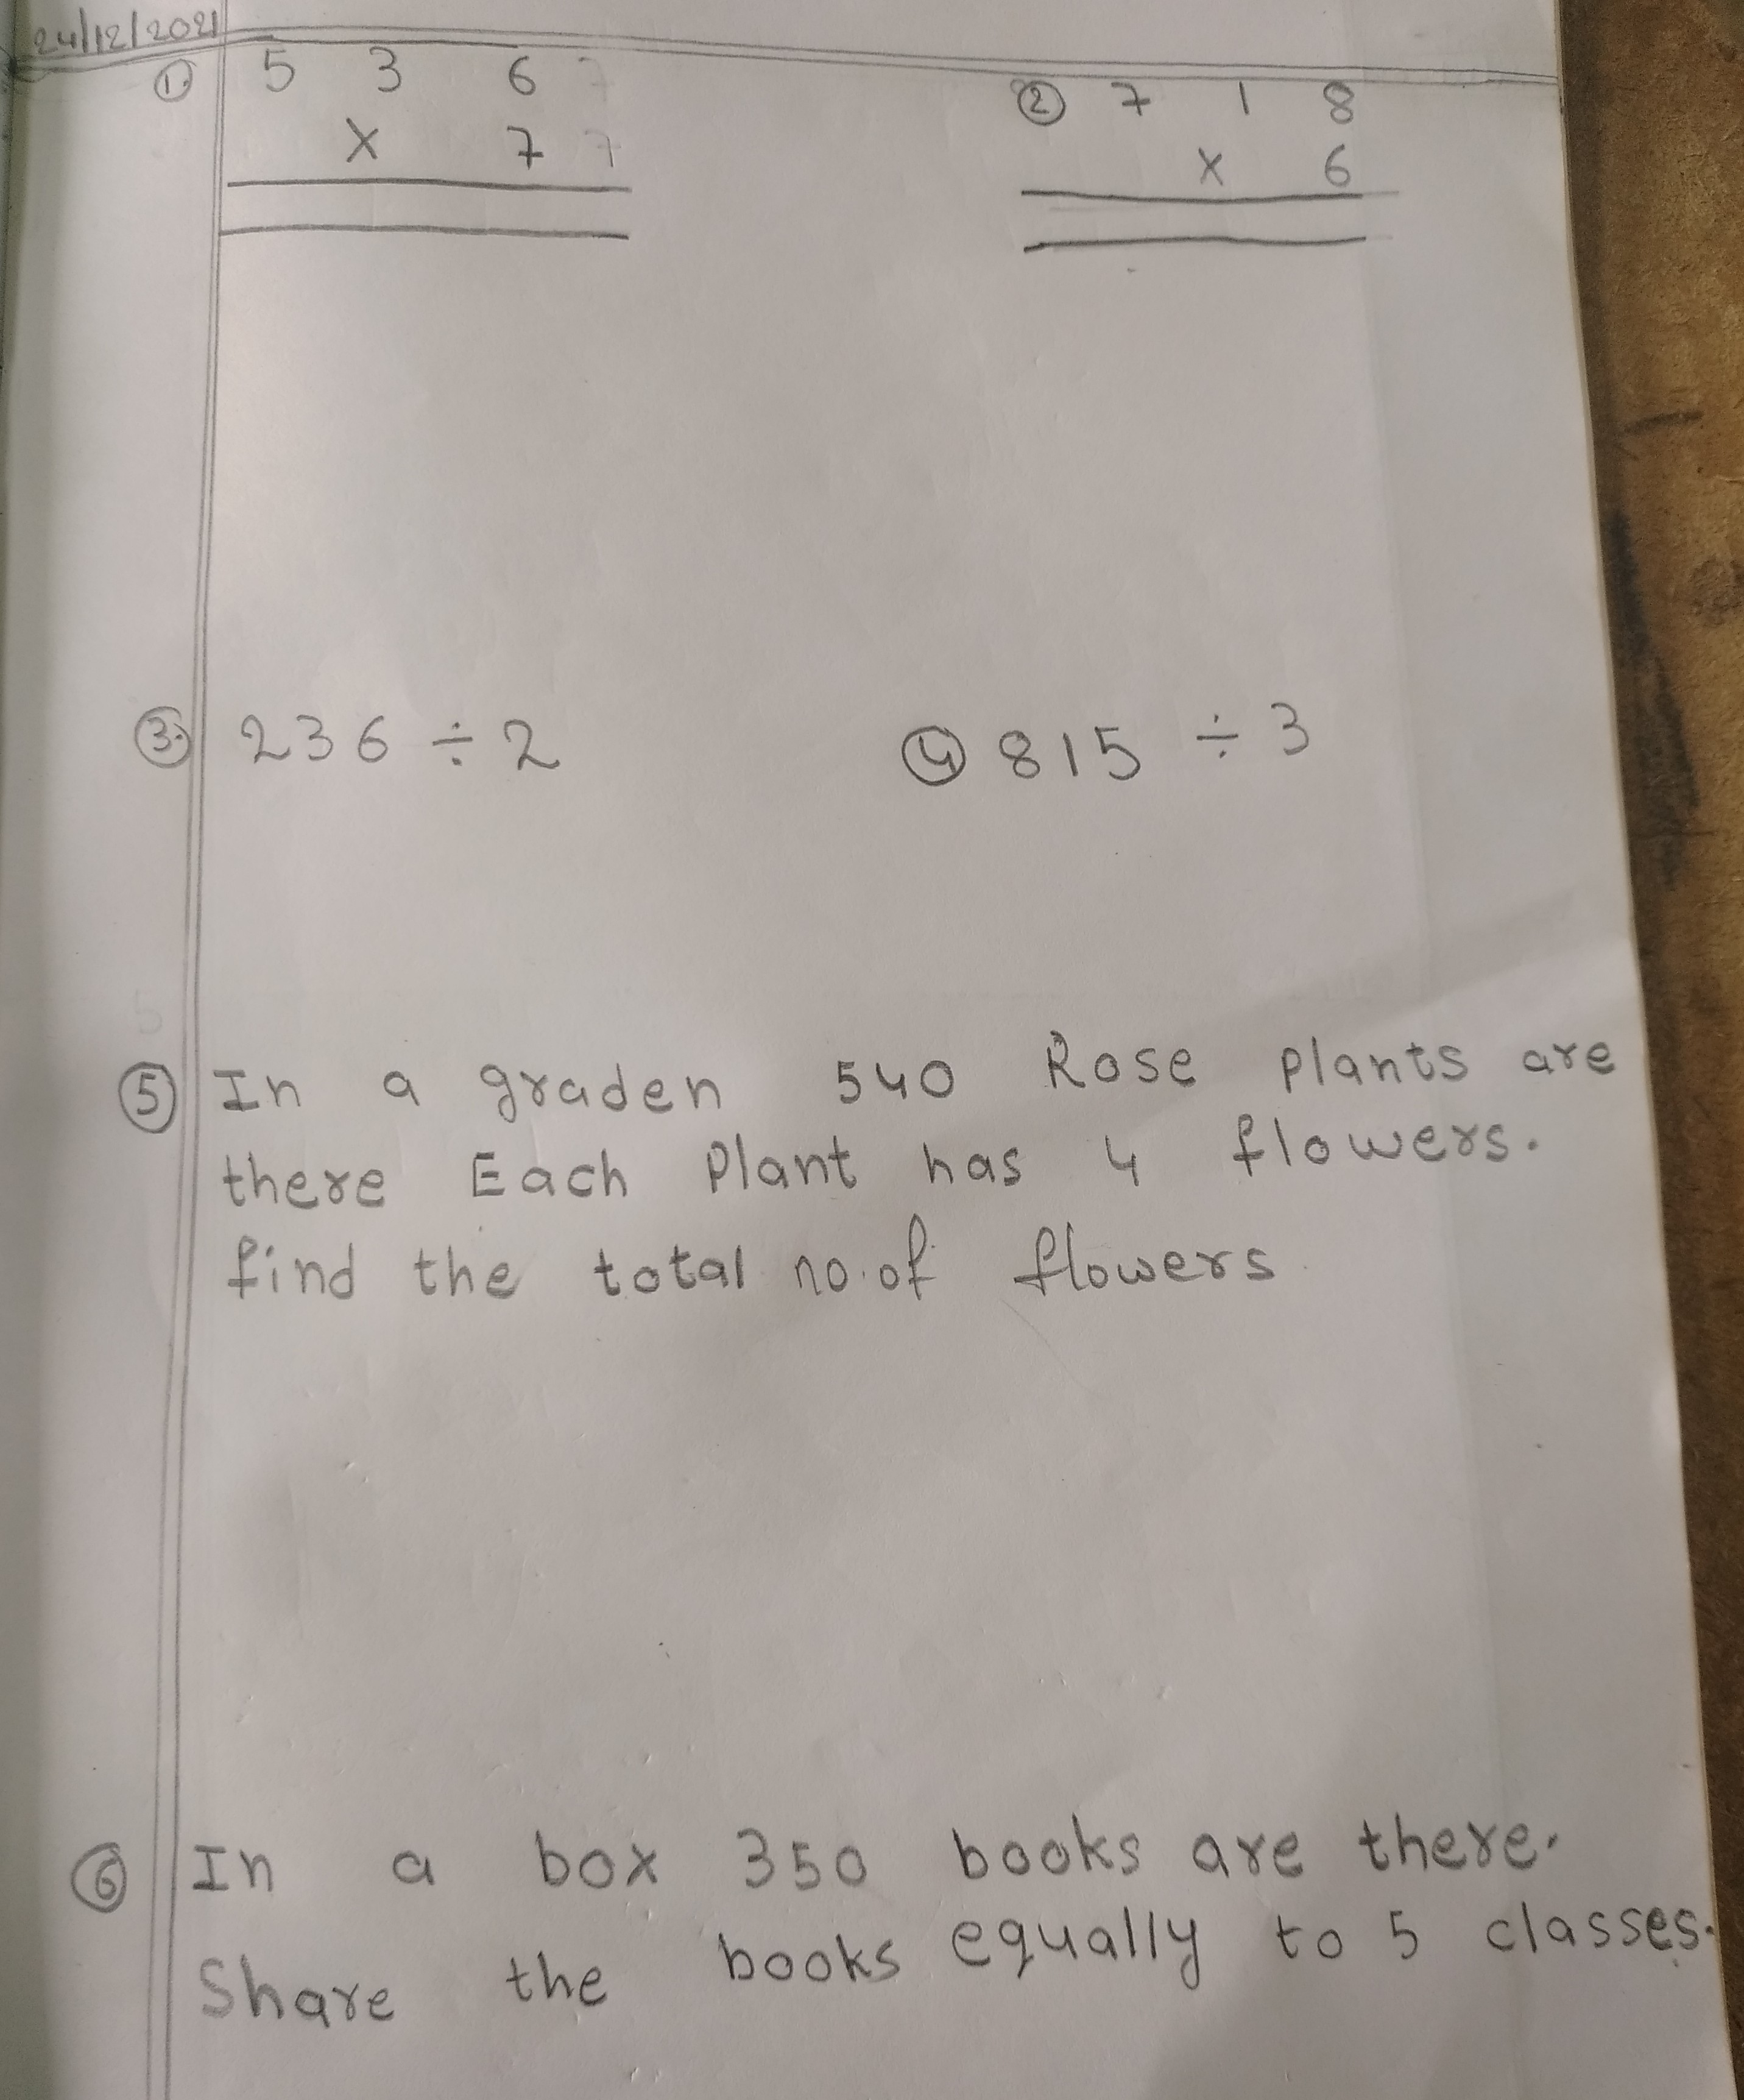 24/12/2021
① 5 3 6
x 7
② 7 1 8
x 6
③ 236 ÷ 2
④ 815 ÷ 3
⑤ In a graden 540 Rose plants are
there Each plant has 4 flowers.
find the total no.of flowers
⑥ In a box 350 books are there.
Share the books equally to 5 classes.